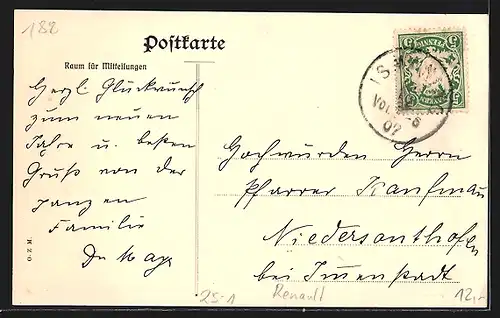 182
Postkarte
Raum für Mitteilungen
Herzl. Glückwunsch
zum neuen
Jahre u. besten
Gruß von der
ganzen
Familie
Dr. May
Hochwürden Herrn
Pfarrer Kaufmann
Niedersonthofen
bei Immenstadt
O. Z. M.
BAYERN
07
25-1
Renault
12,-